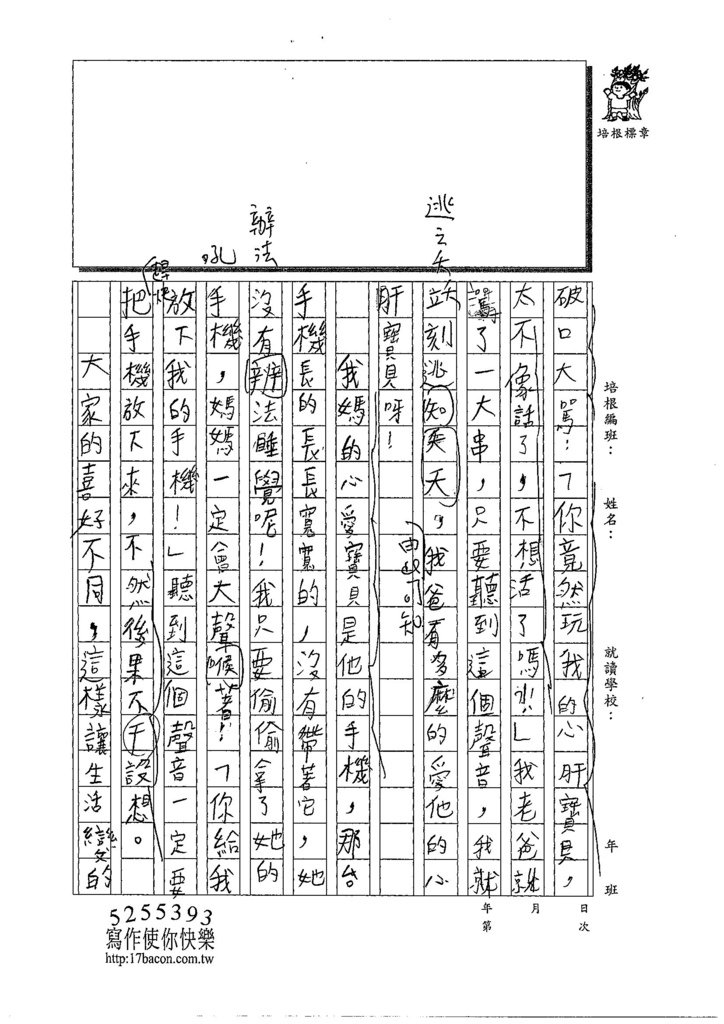 培根標章
培根編班：
姓名：
就讀學校：
年
班
年 月 日
第 次
逃之夭
辦法
吼
趕快
由此可知
破口大罵：「你竟然玩我的心肝寶貝，
太不像話了，不想活了嗎？！」我老爸就
罵了一大串，只要聽到這個聲音，我就
立刻逃知英天。我爸有多麼的愛他的心
肝寶貝呀！
我媽的心愛寶貝是他的手機，那台
手機長的長長寬寬的，沒有帶著它，她
沒有辨法睡覺呢！我只要偷偷拿了她的
手機，媽媽一定會大聲喉著！「你給我
放下我的手機！」聽到這個聲音一定要
把手機放下來，不然後果不干設想。
大家的喜好不同，這樣讓生活變的
5255393
寫作使你快樂
http:17bacon.com.tw